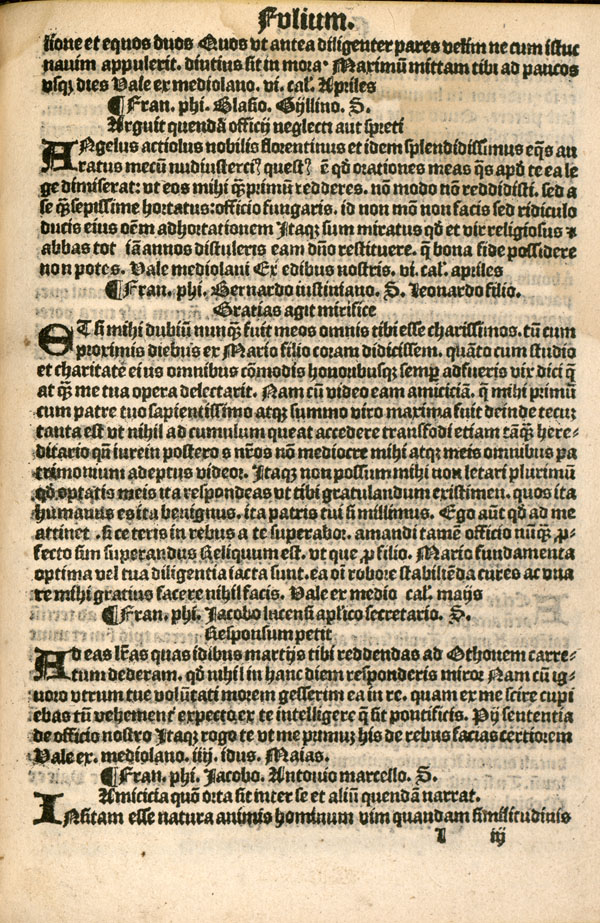 Folium.
lione et equos duos Quos vt antea diligenter pares velim ne cum istuc
nauim appulerit. diutius sit in mora. Maximū mittam tibi ad paucos
vsqꝫ dies Vale ex mediolano. vi. cal. Apriles
¶ Fran. phi. Glasio. Gyllino. S.
Arguit quendā officij neglecti aut spreti
ANgelus actiolus nobilis florentinus et idem splendidissimus eq̄s au
ratus mecū nudiusterciꝰ questꝰ ē qd̄ orationes meas q̄s apd̄ te ea le
ge dimiserat: vt eos mihi qꝫprimū redderes. nō modo nō reddidisti. sed a
se qꝫsepissime hortatus: officio fungaris. id non mō non facis sed ridiculo
ducis eius oēm adhortationem Itaqꝫ sum miratus qd̄ et vir religiosus ⁊
abbas tot iā annos distuleris eam dn̄o restituere. q̄ bona fide possidere
non potes. Vale mediolani Ex edibus nostris. vi. cal. apriles
¶ Fran. phi. Bernardo iustiniano. S. Leonardo filio.
Gratias agit mirifice
ET si mihi dubiū nunqꝫ fuit meos omnis tibi esse charissimos. tū cum
proximis diebus ex Mario filio coram didicissem. quāto cum studio
et charitatē eius omnibus cōmodis honoribusqꝫ semꝑ adfueris vix dici q̄
at qꝫ me tua opera delectarit. Nam cū video eam amiciciā. q̄ mihi primū
cum patre tuo sapientissimo atqꝫ summo viro maxima fuit deinde tecuꝫ
tanta est vt nihil ad cumulum queat accedere transfodi etiam tāqꝫ here-
ditario qn̄ iure in postero s nr̄os nō mediocre mihi atqꝫ meis omnibus pa
trimonium adeptus videor. Itaqꝫ non possum mihi non letari plurimū
qd̄ optatis meis ita respondeas vt tibi gratulandum existimen. quos ita
humanus es ita benignus. ita patris tui simillimus. Ego aūt qd̄ ad me
attinet. si ceteris in rebus a te superabor. amandi tamē officio nūqꝫ ꝓ-
fecto sim superandus Reliquum est. vt que ꝓ filio. Mario fundamenta
optima vel tua diligentia iacta sunt. ea oī robore stabiliēda cures ac vua
re mihi gratius facere nihil facis. Vale ex medio cal. maijs
¶ Fran. phi. Jacobo lucensi aplico secretario. S.
Responsum petit
AD eas lr̄as quas idibus martijs tibi reddendas ad Othonem carre-
tum dederam. qd̄ nihil in hanc diem responderis miror Nam cū ig-
noro vtrum tue volūtati morem gesserim ea in re. quam ex me scire cupi
ebas tū vehementer expecto ex te intelligere q̄ sit pontificis. Pij sententia
de officio nostro Itaqꝫ rogo te vt me primuꝫ his de rebus facias certiorem
Vale ex. mediolano. iiij. idus. Maias.
¶ Fran. phi. Jacobo. Antonio marcello. S.
Amicicia quō orta sit inter se et aliū quendā narrat.
INsitam esse natura animis hominum vim quandam similitudinis
I iij